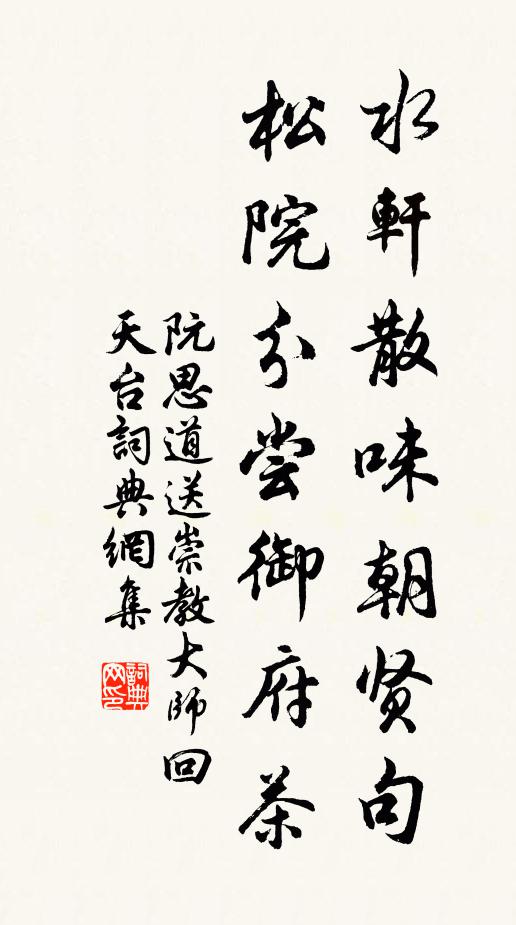 水軒散味朝贤句
松院分尝御府茶
阮思道送崇教大師回
天台詞典網集
詞典网印